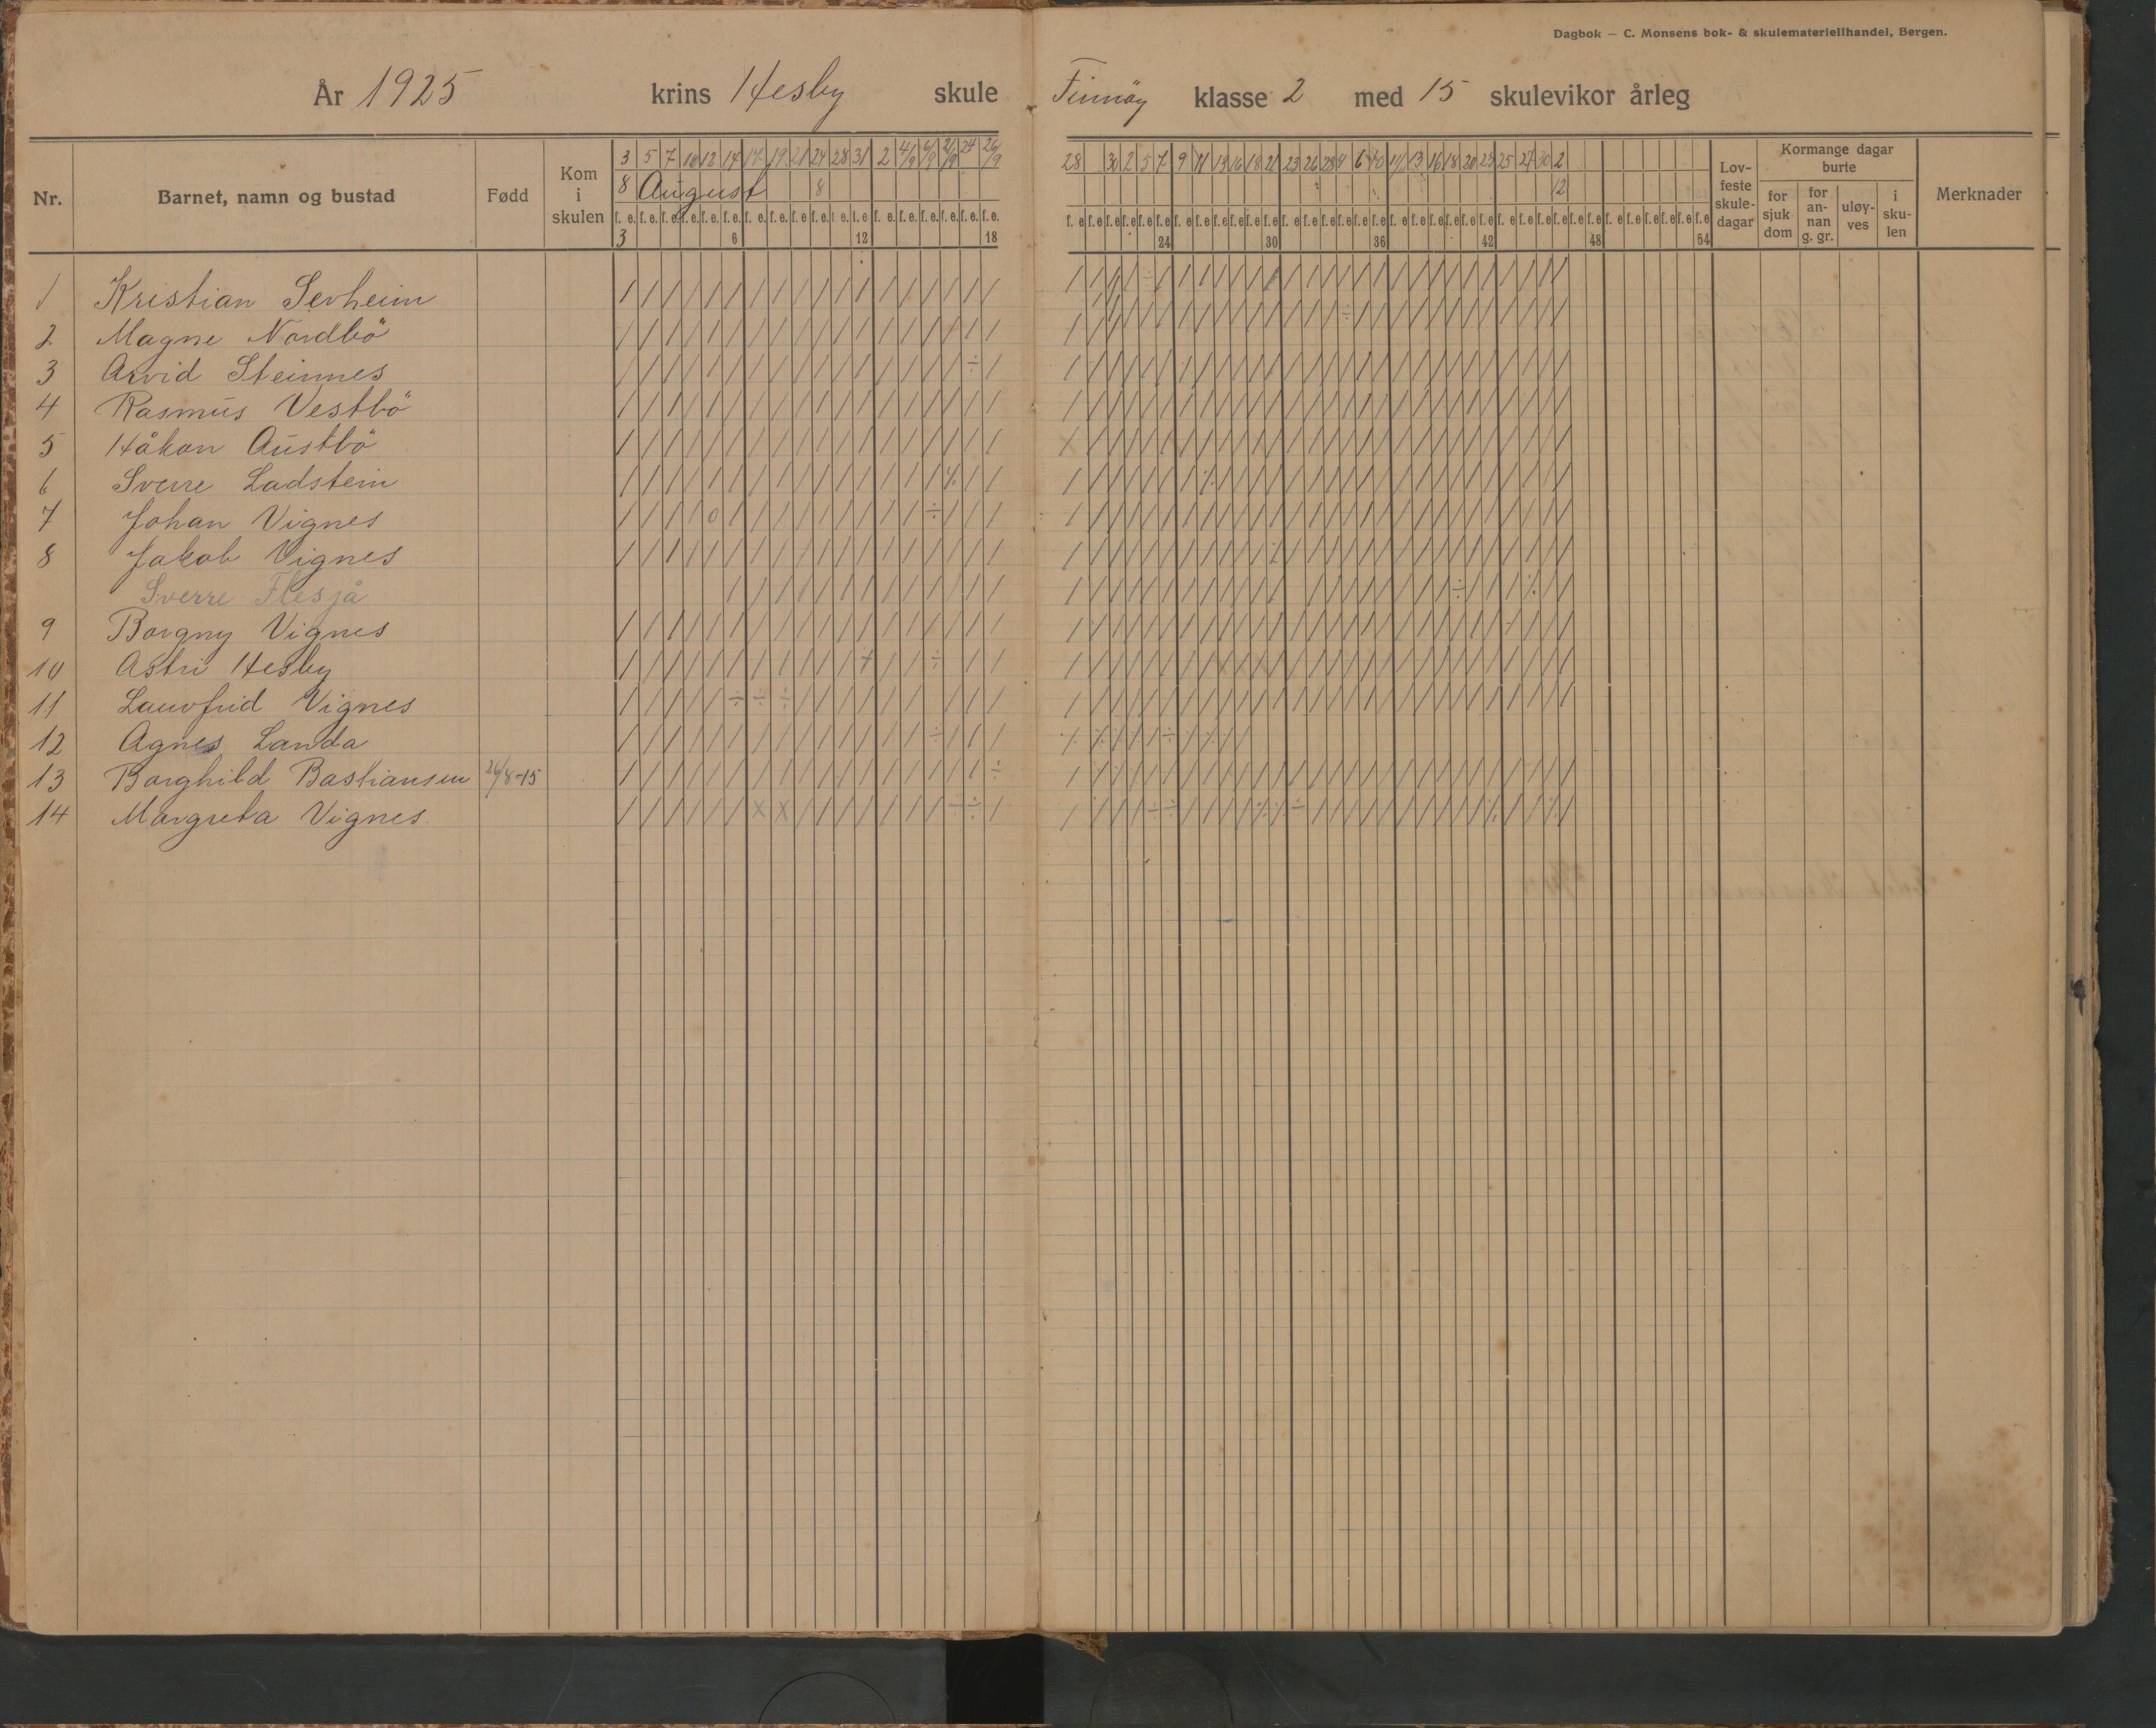 Dagbok — C. Monsens bok- & skulemateriellhandel, Bergen.
År 1925 krins Hesby skule Finnöy klasse 2 med 15 skulevikor årleg
Nr. Barnet, namn og bustad Fødd Kom i skulen
3 5 7 10 12 14 17 19 21 24 28 31 2 4/9 21/9 24 26/9
8 August 8
f. e. f. e. f. e. f. e. f. e. f. e. f. e. f. e. f. e. f. e. f. e. f. e. f. e. f. e. f. e. f. e. f. e. f. e.
3 6 12 18
28 30 2 5 7 9 11 13 16 18 21 23 26 28 6 11 13 16 18 20 23 25 27 30 2
12
24 30 36 42 48 54
Lov-
feste
skule-
dagar
Kormange dagar
burte
for
sjuk
dom
for
an-
nan
g. gr.
uløy-
ves
i
sku-
len
Merknader
1 Kristian Serheim
2 Magne Nordbö
3 Arvid Steinnes
4 Rasmus Vestbö
5 Håkon Austbö
6 Sverre Ladstein
7 Johan Vignes
8 Jakob Vignes
Sverre Flesjå
9 Borgny Vignes
10 Astri Hesby
11 Lauvfrid Vignes
12 Agnes Landa
13 Borghild Bastiansen 26/8-15
14 Margreta Vignes